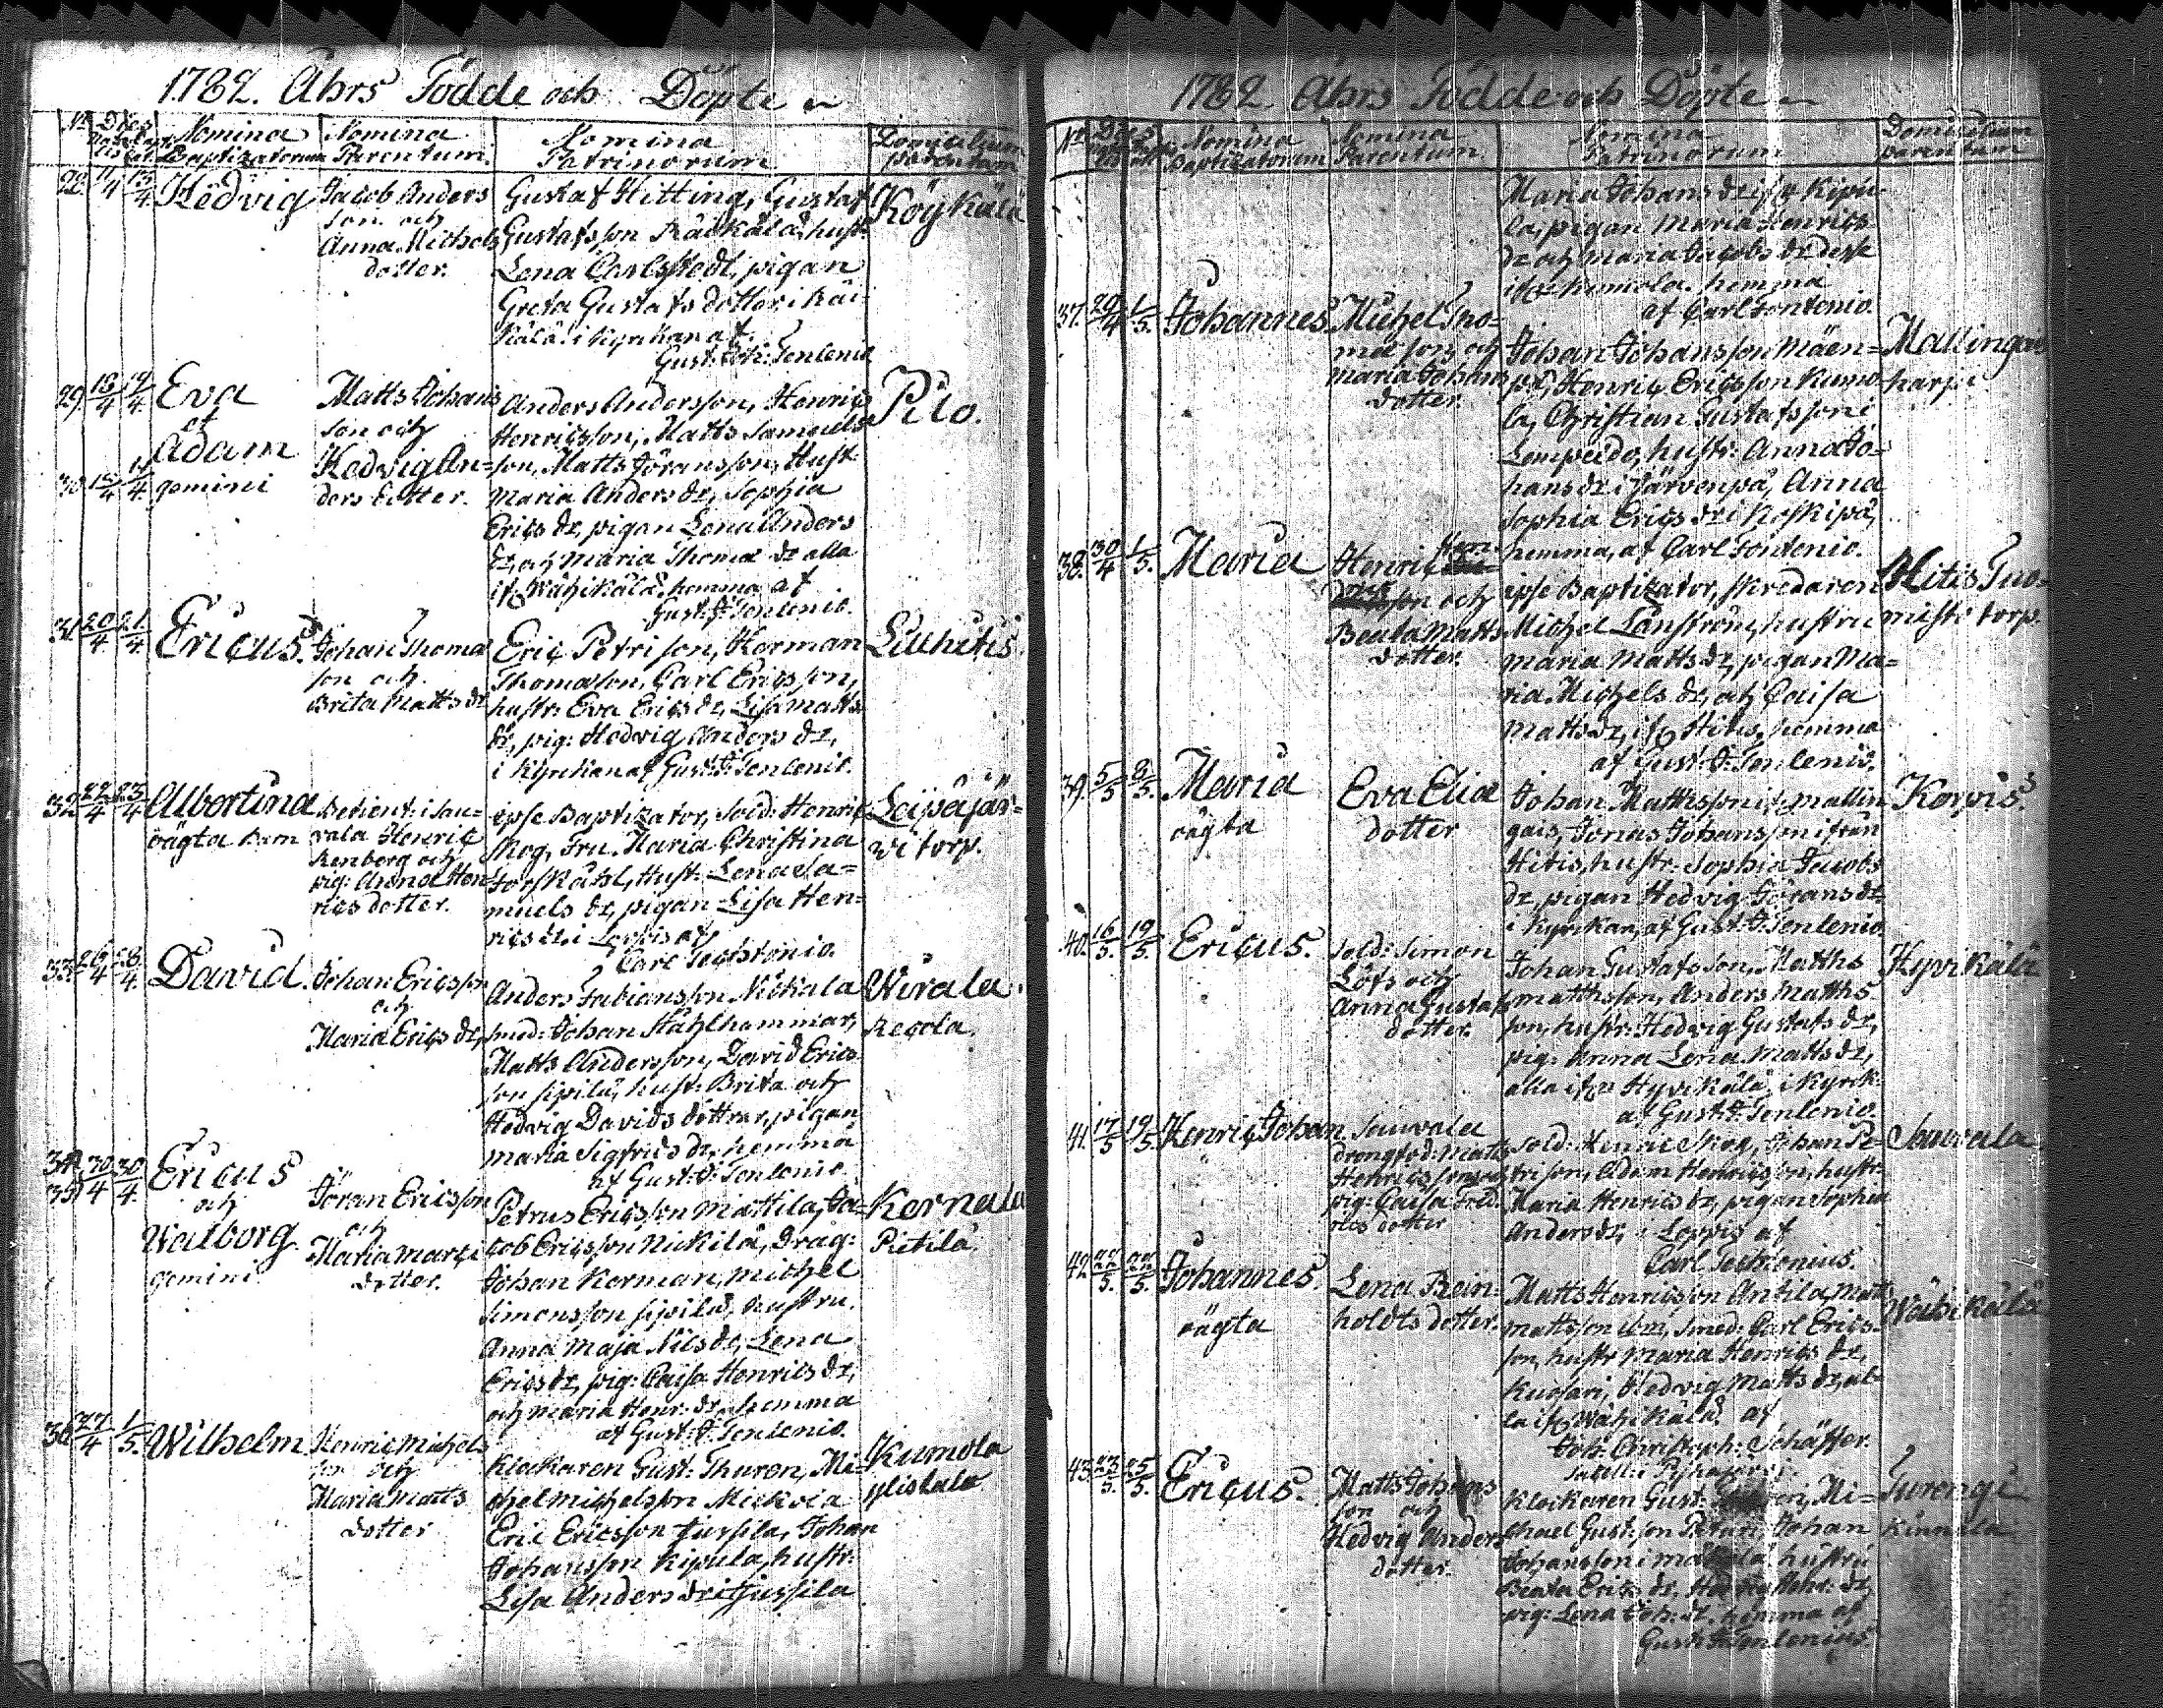 1782. Åhrs Födde och Döpte
Nomina Baptizatorum
Nomina Parentum.
Nomina Patrinorum
Domicilium parentum
28. 11/4 13/4
Hedvig
Jacob Anders
son och
Anna Michels
dotter.
Gustaf Hitting, Gustaf
Gustafsson Räikälä, hust:
Lena Carlstedt, pigan
Greta Gustafs dotter i Räi-
kälä. i Kyrkan af
Gust: Joh: Tenlenio
Köykälä
29. 13/4 14/4
Eva
et
Adam
gemini
30. 15/4
Matts Johans
son och
Hedvig An-
ders dotter.
Anders Andersson, Henric
Henricsson, Matts Samuels
son, Matts Göransson, Hust:
Maria Anders dr, Sophia
Erics dr, pigan Lena Anders
dr, och Maria Thomæ dr alla
if Wähikälä. hemma af
Gust: J: Tenlenio.
Pilo.
31. 20/4 21/4
Ericus.
Johan Thomæ
son och
Brita Matts dr
Eric Petrison, Herman
Thomæson, Carl Ericsson,
hustr: Eva Erics dr, Lisa Matts
dr, pig: Hedvig Anders dr,
i Kyrkan af Gust: J: Tenlenio.
Liuhitis.
32. 22/4 23/4
Albertina
oägta barn
Betient: i Sau-
vala Henric
Renberg och
pig: Anna Hen
rics dotter.
ipse Baptizator, Sold: Henric
Skog, Fru Maria Christina
Forskåhl, Hust: Lena Sa-
muels dr, pigan Lisa Hen-
rics dr. i Loppis af
Carl
Leipäjär-
wi torp.
33. 26/4 28/4
David.
Johan Ericsson
och
Maria Erics dr,
Anders Fabiansson Nickala
smed: Johan Stählhammar,
Matts Andersson, David Erics
son Sipilä, hust: Brita och
Hedvig Davids döttrar, pigan
Maria Sigfrids dr, hemma
af Gust: J: Tenlenio.
Wirala.
Regola.
34 35 30/4 30/4
Ericus
och
Walborg.
gemini
Jöran Ericsson
och
Maria Marci
dotter.
Petrus Ericsson Mattila, Ja-
cob Ericsson Nickilä, Drag:
Johan Korman, Michel
Simonsson Sipilä, hustru.
Anna Maja Nils dr, Lena
Erics dr, pig: Caisa Henrics dr,
och Maria Henr: dr, hemma
af Gust: J: Tenlenio.
Kernala
Pietilä.
36 27/4 1/5
Wilhelm
Henric Michels
son och
Maria Matts
dotter
Klockaren Gust: Thuren, Mi-
chel Michelsson Mickola
Eric Ericsson Jussila, Johan
Johansson Kipula, hustr:
Lisa Anders dr if Jussila
Kumola
Ylistalo
1782. Åhrs Födde och Döpte
Nomina Baptizatorum
Nomina Parentum
Nomina Patrinorum
Domicilium parentum
Maria Johans dr if Kipu-
la, pigan Maria Henrics
dr och Maria Jacobs dr
if Kumola. hemma
af Carl
37. 29/4 1/5
Johannes
Michel Tho-
mæson och
Maria Johans
dotter.
Johan Johansson Mäen-
pä, Henric Ericsson Kumo
la, Christian Gustafsson i
hustr: Anna Jo-
hans dr i Järvenpä, Anna
Sophia Erics dr i Koskipä,
hemma, af Carl
Mallingais
harju
38. 30/4 1/5
Maria
Henric Hen-
rics
son och
Beata Matts
dotter.
ipse Baptizator, Skredaren
Michel Lanström, hustru
Maria Matts dr, pigan Ma-
ria Michels dr, och Caisa
Matts dr, if Hitis, hemma
af Gust: J: Tenlenio.
Hitis Tuo-
misto torp.
39. 5/5 8/5
Maria
oägta
Eva Eliæ
dotter
Johan Mattsson if Mallin
gais, Jonas Johansson ifrån
Hitis, hustr: Sophia Jacobs
dr, pigan Hedvig Görans dr
i kyrkan, af Gust: J: Tenlenio.
Korpis.
40. 16/5 19/5
Ericus.
Sold: Simon
Löfs och
Anna Gustafs
dotter.
Johan Gustafsson, Matths
Matthsson, Anders Matths
son, hustr: Hedvig Gustafs dr,
pig: Anna Lena Matts dr,
alla if Hyvikälä. i Kyrk:
af Gust: J: Tenlenio.
Hyvikälä
41. 17/5 19/5
Henric Johan
Sauvala
Matts
Henricsson och
pig: Caisa Fred
rics dotter
Sold: Henric Skog, Johan Pe-
trison, Adam Henricsson, hustr:
Maria Henrics dr, pigan Sophia
Anders dr, i Loppis af
Carl
Sauvala
42. 22/5 22/5
Johannes.
oägta
Lena Rein-
holdts dotter.
Matts Henricsson Antila, Matts
Mattsson ibm, Smed: Carl Erics-
son, hustr Maria Henrics dr,
Kuosari, Hedvig Matts dr, al-
la if Wähikälä. af
Joh: Christoph: Schäffer.
Wähikälä
43. 23/5 25/5
Ericus.
Matts Johans
son och
Hedvig Anders
dotter.
Klockaren Gust: Mi-
chael Gust:son Johan
Johansson i hustru
Beata Erics dr,
pig: Lena Joh: dr. hemma af
Gust: J: Tenlenius
Turengi
Kinnala